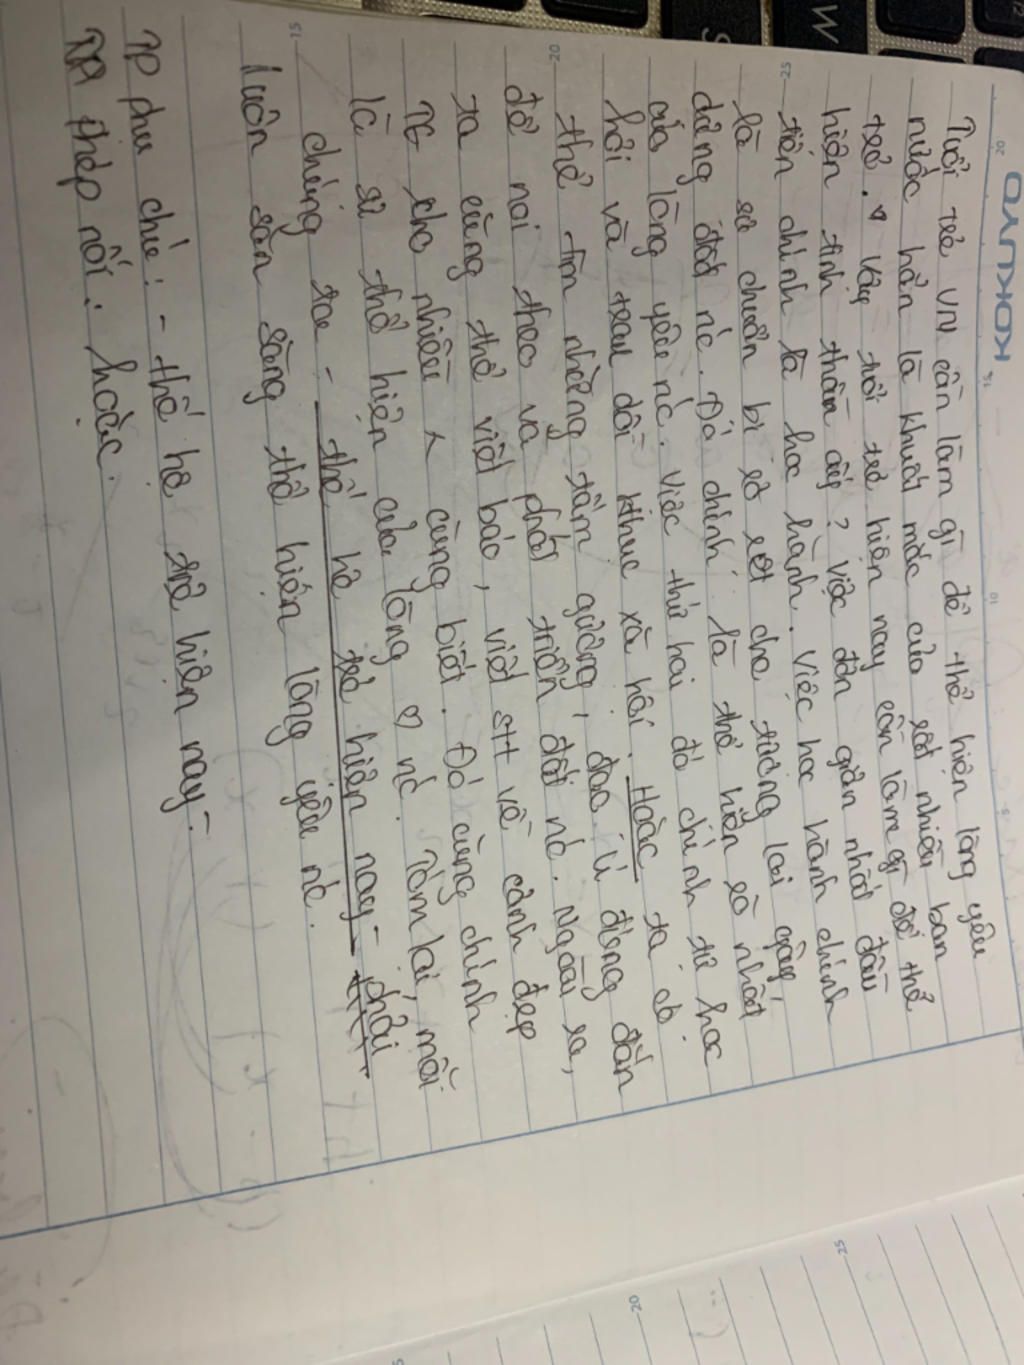 KOKUYO
Tuổi trẻ VN cần làm gì để thể hiện lòng yêu
nước hẳn là khuất mắc của rất nhiều bạn
trẻ. Vậy tuổi trẻ hiện nay cần làm gì để thể
hiện tinh thần ấy? Việc đơn giản nhất đầu
tiên chính là học hành. Việc học hành chính
là sự chuẩn bị sơ xét cho tương lai gây
dựng đất nc. Đó chính là thể hiện rõ nhất
của lòng yêu nc. Việc thứ hai đó chính tự học
hỏi và trau dồi kthuc xã hội. Hoặc ta có
thể tìm những tấm gương, đạo lí đúng đắn
để noi theo và phát triển đất nc. Ngoài ra,
ta cũng thể viết báo, viết stt về cảnh đẹp
cho nhiều cùng biết. Đó cũng chính
là sự thể hiện của lòng ♡ nc. Tóm lại, mỗi
chúng ta - thế hệ trẻ hiện nay - phải
luôn sẵn sàng thể hiện lòng yêu nc.
TP phụ chú: - thế hệ trẻ hiện nay -
phép nối: hoặc.
20
15
10
5
25
20
15
25
20